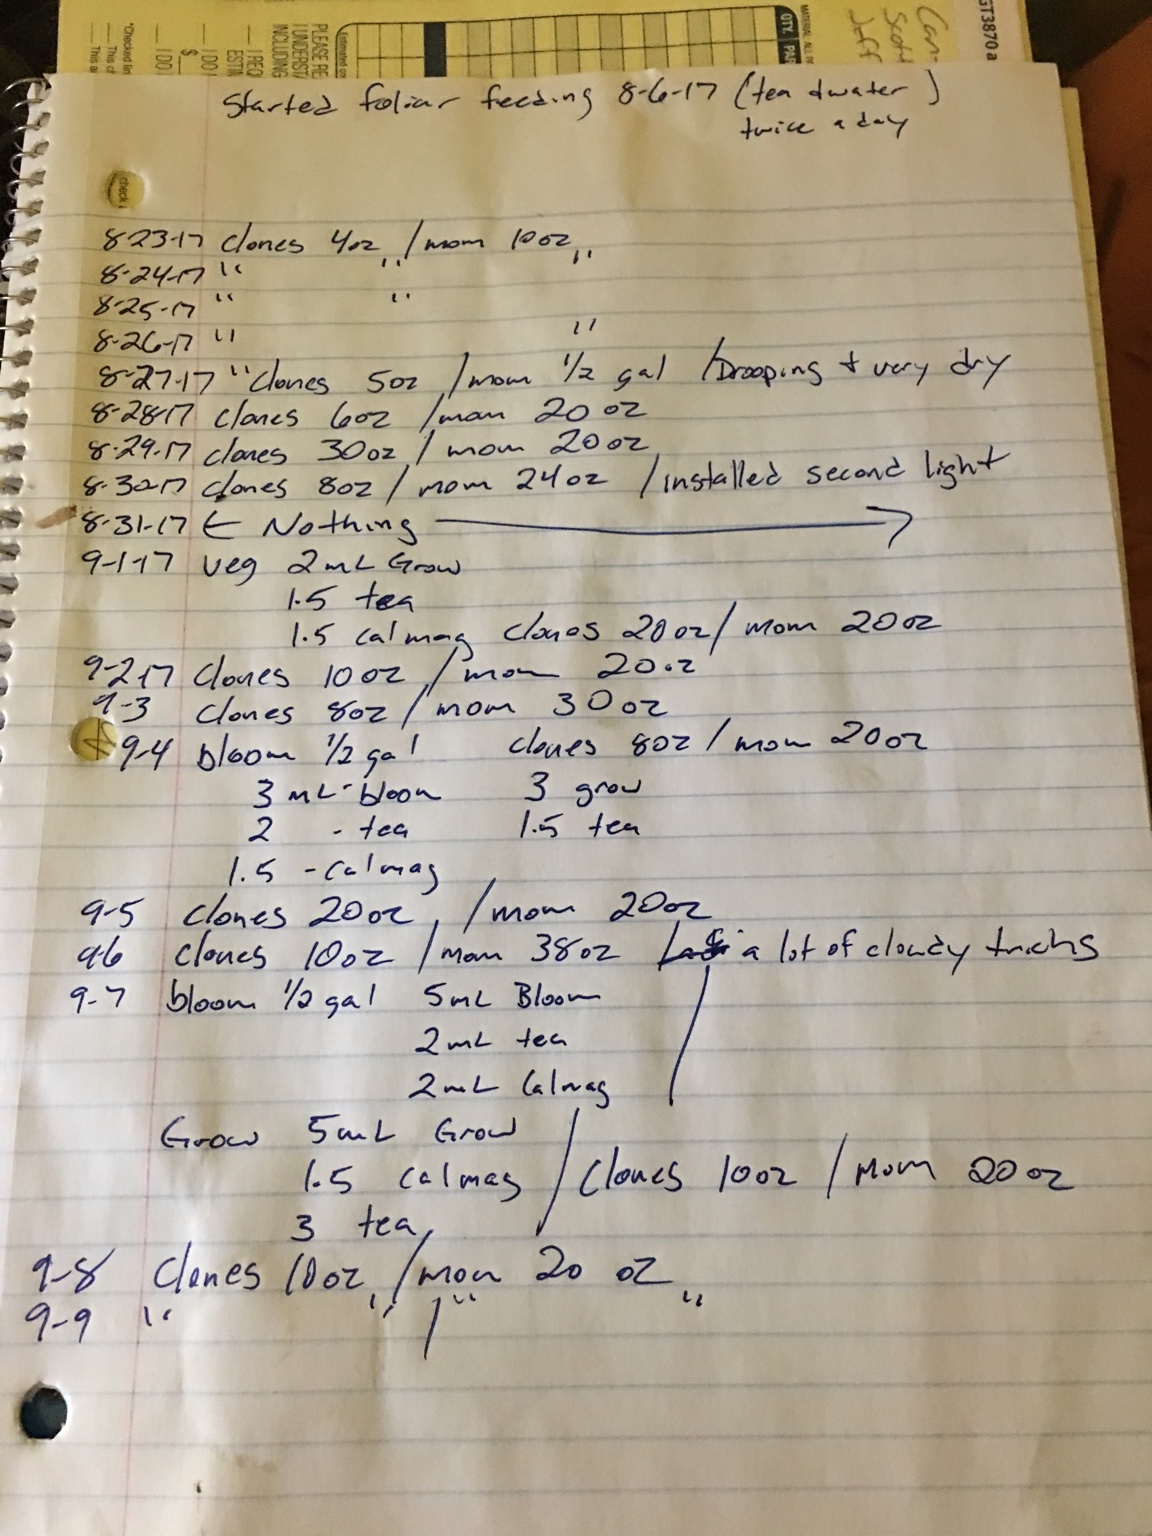 GT3870
Can
Scott
Jeff
QTY.
PLEASE RE
UNDERST
INCLUDING
I REQ
ESTIM
I DO
$
I DO
*Checked
This
This a
Started foliar feeding 8-6-17 (tea + water)
twice a day
check
8-23-17 clones 4oz / mom 10oz
8-24-17 " " "
8-25-17 " "
8-26-17 " "
8-27-17 "clones 5oz / mom 1/2 gal / Drooping + very dry
8-28-17 clones 6oz / mom 20 oz
8-29-17 clones 30oz / mom 20oz
8-30-17 clones 8oz / mom 24oz / installed second light
8-31-17 ← Nothing →
9-1-17 veg 2mL Grow
1.5 tea
1.5 calmag clones 20oz / mom 20oz
9-2-17 clones 10oz / mom 20oz
9-3 clones 8oz / mom 30oz
9-4 bloom 1/2 gal clones 8oz / mom 20oz
3 mL - bloom 3 grow
2 - tea 1.5 tea
1.5 - calmag
9-5 clones 20oz / mom 20oz
9-6 clones 10oz / mom 38oz / a lot of cloudy trichs
9-7 bloom 1/2 gal 5mL Bloom
2mL tea
2mL Calmag
Grow 5mL Grow
1.5 calmag / Clones 10oz / Mom 20oz
3 tea
9-8 Clones 10oz / mom 20 oz
9-9 " " / " "